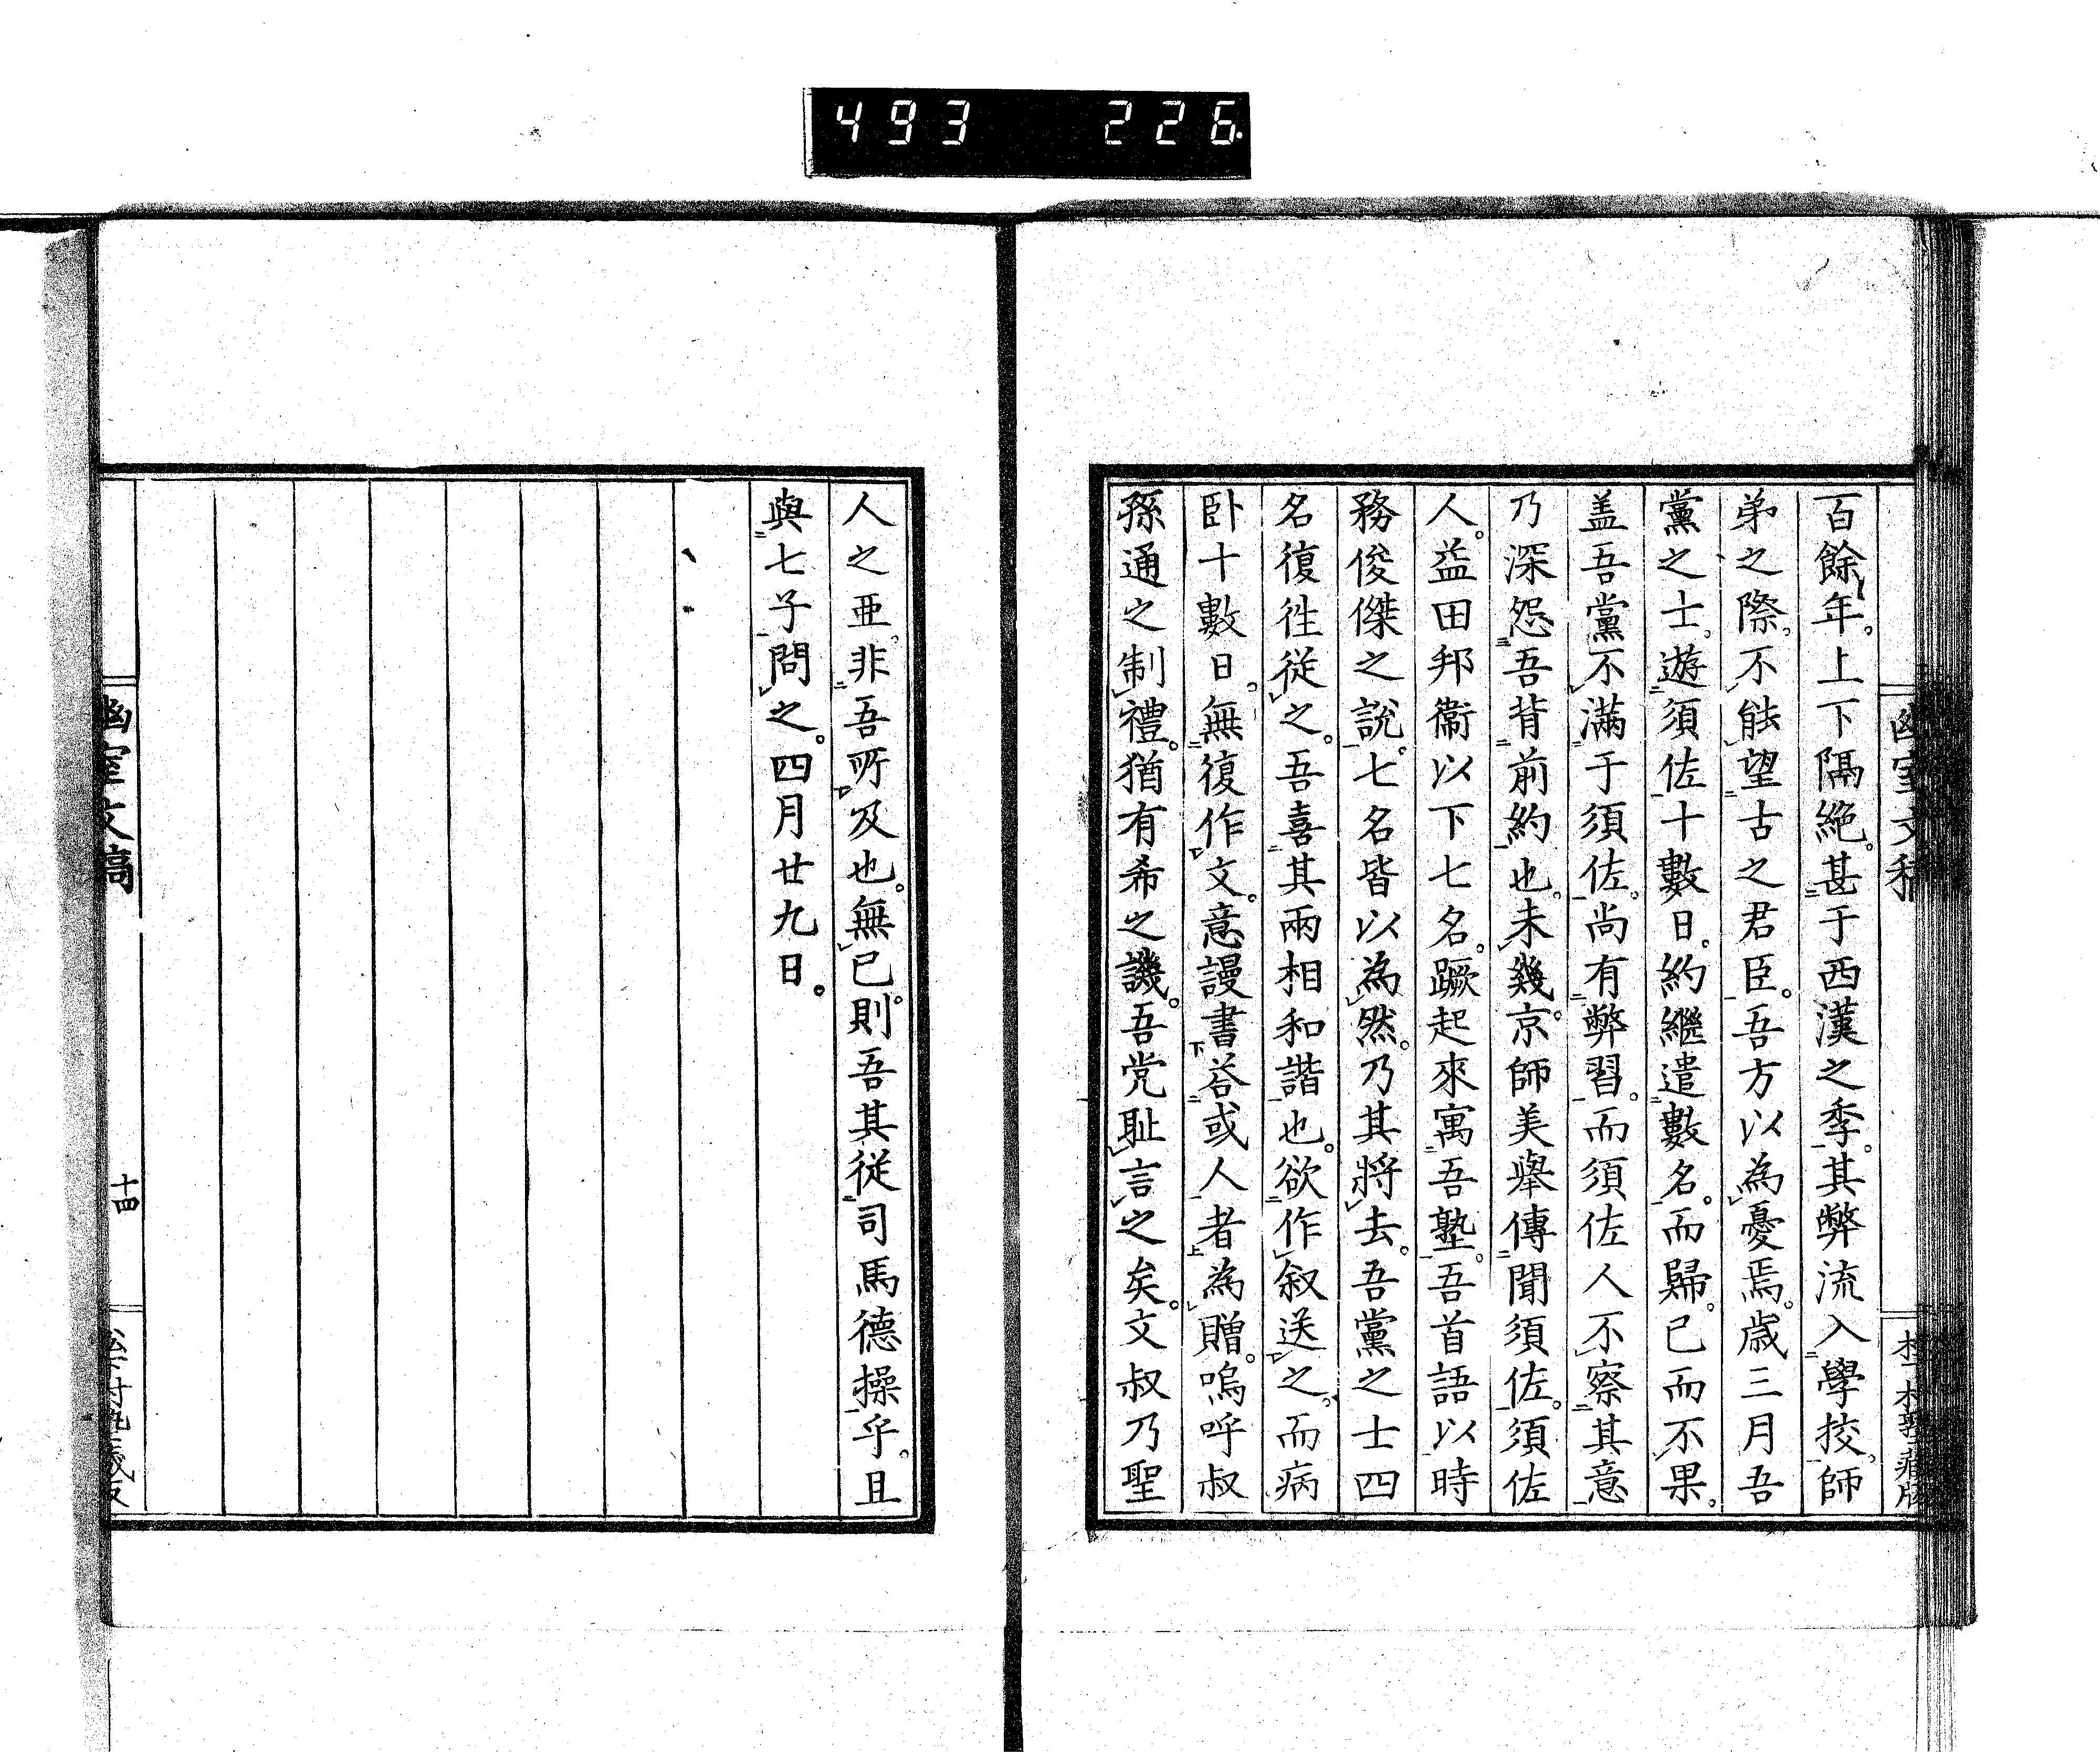 493 226
百餘年。上下隔絶。甚于西漢之季。其弊流入學校。師
弟之際。不能望古之君臣。吾方以為憂焉。歳三月吾
黨之士。遊須佐十數日。約繼遣數名。而歸。已而不果。
盖吾黨不滿于須佐。尚有弊習。而須佐人不察其意
乃深怨吾背前約也。未幾。京師美舉傳聞須佐。須佐
人。益田邦衞以下七名。蹶起來寓吾塾。吾首語以時
務俊傑之說。七名皆以為然。乃其將去。吾黨之士四
名復徃從之。吾喜其兩相和諧也。欲作叙送之。而病
卧十數日。無復作文。意謾書荅或人者為贈。嗚呼叔
孫通之制禮。猶有希之譏。吾党耻言之矣。文叔乃聖
人之亜。非吾所及也。無已。則吾其從司馬德操乎。且
與七子問之。四月廿九日。
幽室文稿
十四